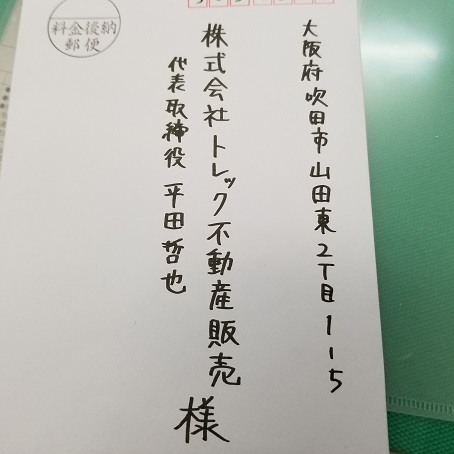 大阪府吹田市山田東2丁目1-5
株式会社トレック不動産販売
代表取締役 平田哲也
様
料金後納
郵便